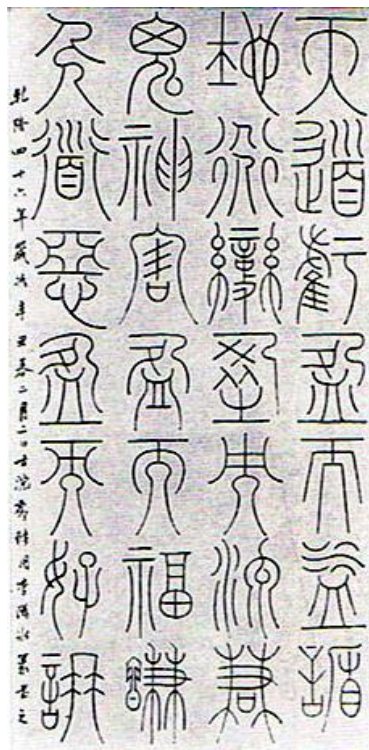 天道虧盈而益謙
地道變盈而流謙
鬼神害盈而福謙
人道惡盈而好謙
乾隆四十六年歲次辛丑春二月二日
李陽冰篆書之